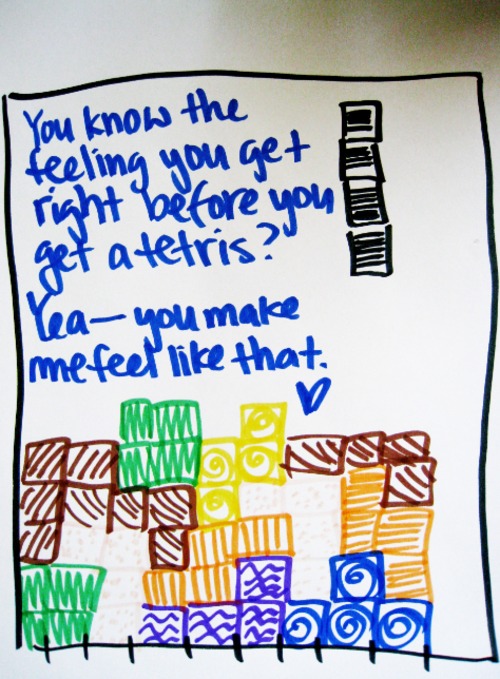 You know the
feeling you get
right before you
get a tetris?
Yea—you make
me feel like that.